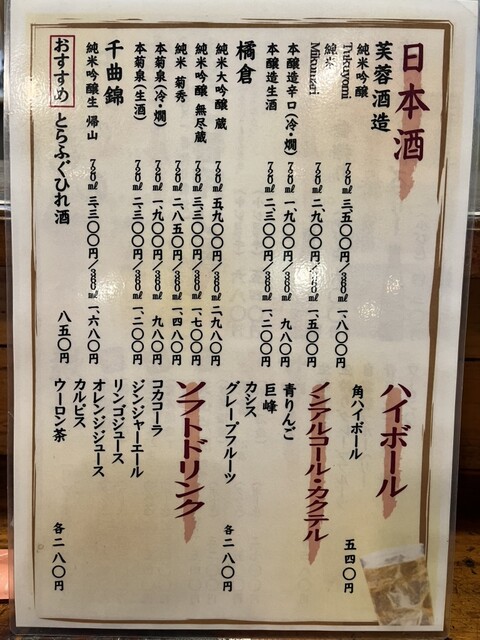 日本酒
芙蓉酒造
純米吟醸 Tukuyomi 720㎖ 三、五〇〇円／360㎖ 一、八〇〇円
純米 Mikumari 720㎖ 二、九〇〇円／360㎖ 一、五〇〇円
本醸造辛口(冷・燗) 720㎖ 一、九〇〇円／360㎖ 九八〇円
本醸造生酒 720㎖ 二、三〇〇円／360㎖ 一、二〇〇円
橘倉
純米大吟醸 蔵 720㎖ 五、九〇〇円／360㎖ 二、九八〇円
純米吟醸 無尽蔵 720㎖ 三、三〇〇円／360㎖ 一、七〇〇円
純米 菊秀 720㎖ 二、八五〇円／360㎖ 一、四八〇円
本菊泉(冷・燗) 720㎖ 一、九〇〇円／360㎖ 九八〇円
本菊泉(生酒) 720㎖ 二、三〇〇円／360㎖ 一、二〇〇円
千曲錦
純米吟醸生 帰山 720㎖ 三、三〇〇円／360㎖ 一、六八〇円
おすすめ とらふぐひれ酒 八五〇円
ハイボール
角ハイボール 五四〇円
ノンアルコール・カクテル
青りんご
巨峰
カシス
グレープフルーツ 各二八〇円
ソフトドリンク
コカコーラ
ジンジャーエール
リンゴジュース
オレンジジュース
カルピス
ウーロン茶 各二八〇円